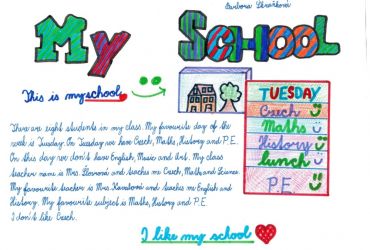 Barbora
My School
This is my school
TUESDAY
Czech
Maths
History
lunch
P.E.
There are eight students in my class. My favourite day of the
week is Tuesday. On Tuesday we have Czech, Maths, History and P.E.
On this day we don't have English, Music and Art. My class
teacher name is Mrs. and teaches me Czech, Math and Science.
My favourite teacher is Mrs. and teaches me English and
History. My favourite subject is Maths, History and P.E.
I don't like Czech.
I like my school